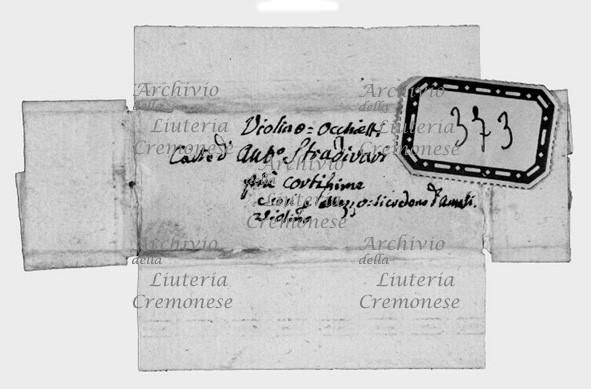 Violino = Occhietti
Casse d' Ant.o Stradivari
più cortissime
violino
373
Archivio
della
Liuteria
Cremonese
Archivio
della
Liuteria
Cremonese
Archivio
della
Liuteria
Cremonese
Archivio
della
Liuteria
Cremonese
Archivio
della
Liuteria
Cremonese